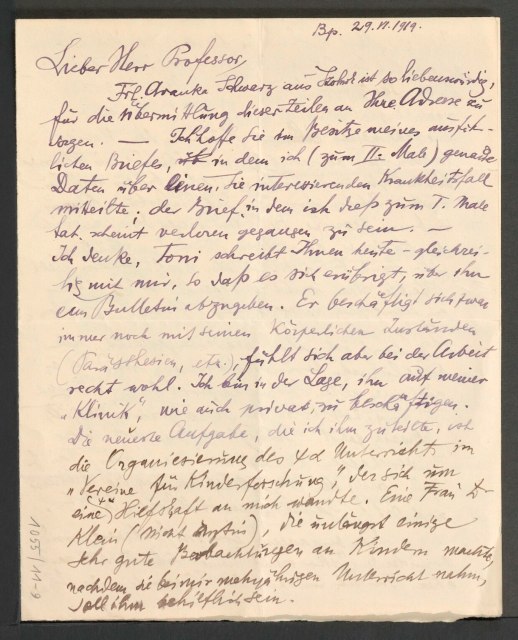 Bp. 29. VI. 1919.
Lieber Herr Professor,
Frl Aranka Schwarz aus ist so liebenswürdig,
für die Übermittlung dieser Zeilen an Ihre Adresse zu
sorgen. — Ich hoffe Sie im Besitze meines ausführ-
lichen Briefes, in dem ich (zum II. Male) genaue
Daten über einen, Sie interessierenden Krankheitsfall
mitteilte; der Brief, in dem ich dies zum I. Male
tat, scheint verloren gegangen zu sein. —
Ich denke, Toni schreibt Ihnen heute – gleichzei-
tig mit mir, so daß es sich erübrigt, über ihn
ein Bulletin abzugeben. Er beschäftigt sich zwar
immer noch mit seinen körperlichen Zuständen
(Parästhesien, etc.), fühlt sich aber bei der Arbeit
recht wohl. Ich bin in der Lage, ihn auf meiner
„Klinik", wie auch privat zu beschäftigen.
Die neueste Aufgabe, die ich ihm zuteilte, ist
die Organisierung des ψα Unterrichts im
„Vereine für Kinderforschung", der sich um
eine Hilfskraft an mich wandte. Eine Frau Dr
Klein (nicht), die unlängst einige
sehr gute Beobachtungen an Kindern machte,
nachdem sie bei mir mehrjährigen Unterricht nahm,
soll ihm behilflich sein.
1055/11-9